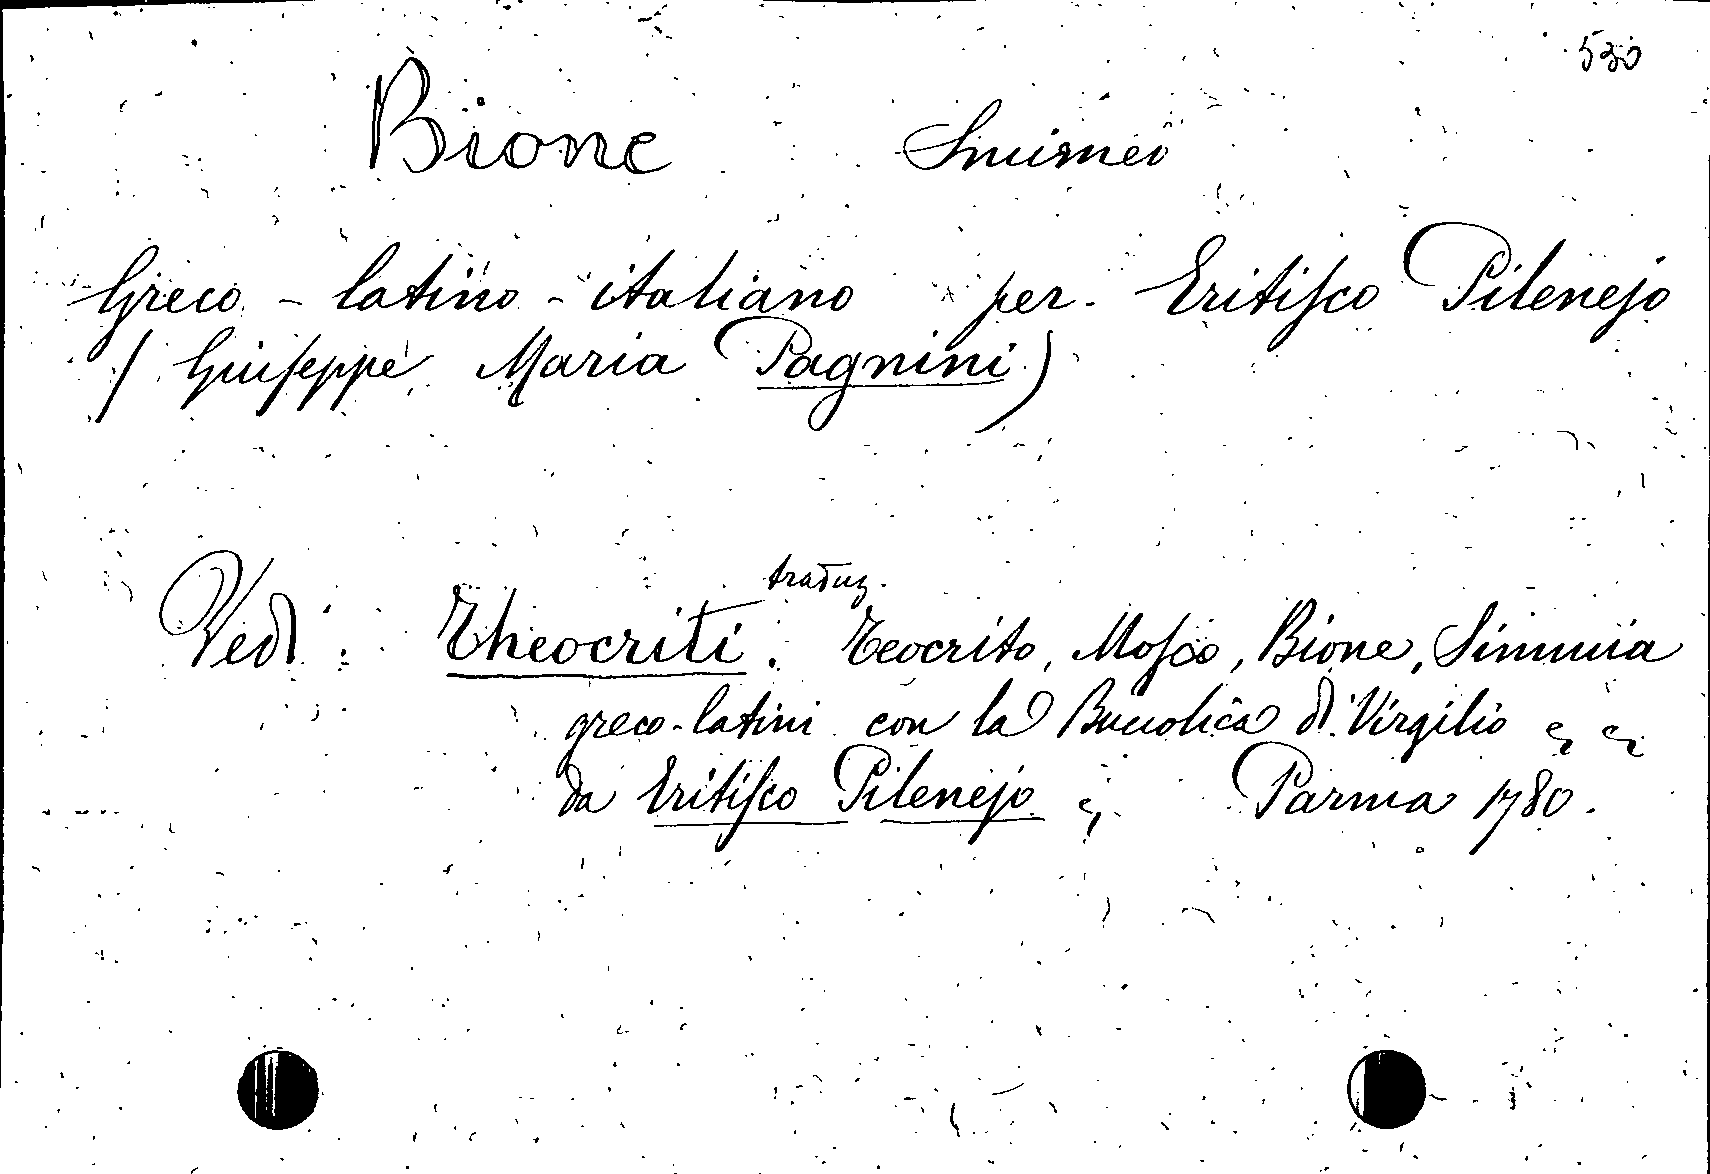 530
Bione Smirneo
Greco - latino - italiano per Eritisco Pilenejo
( Giuseppe Maria Pagnini )
traduz.
Vedi : Theocriti . Teocrito, Mosco, Bione, Simmia
greco-latini con la Buccolica di Virgilio
da Eritisco Pilenejo Parma 1780.